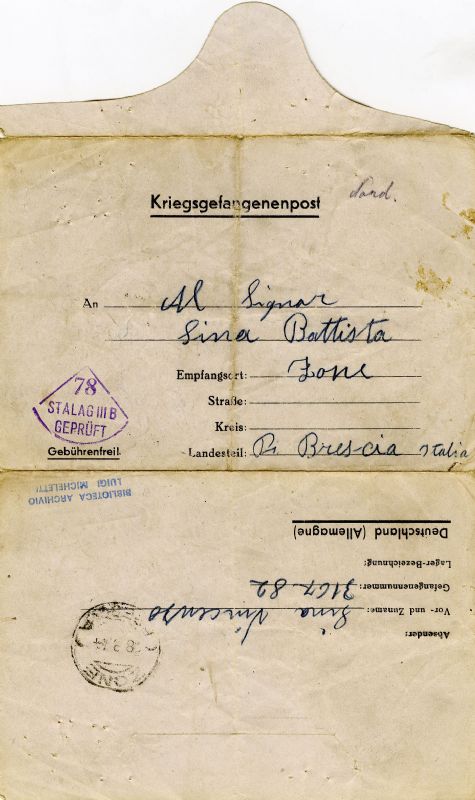 Kriegsgefangenenpost
An Al Signor
Sina Battista
Empfangsort: Zone
Straße:
Kreis:
Landesteil: Pr Brescia Italia
78
STALAG III B
GEPRÜFT
Gebührenfrei!
BIBLIOTECA ARCHIVIO
LUIGI MICHELETTI
Absender:
Vor- und Zuname: Sina Vincenzo
Gefangenennummer:
Lager-Bezeichnung:
Deutschland (Allemagne)
ZONE